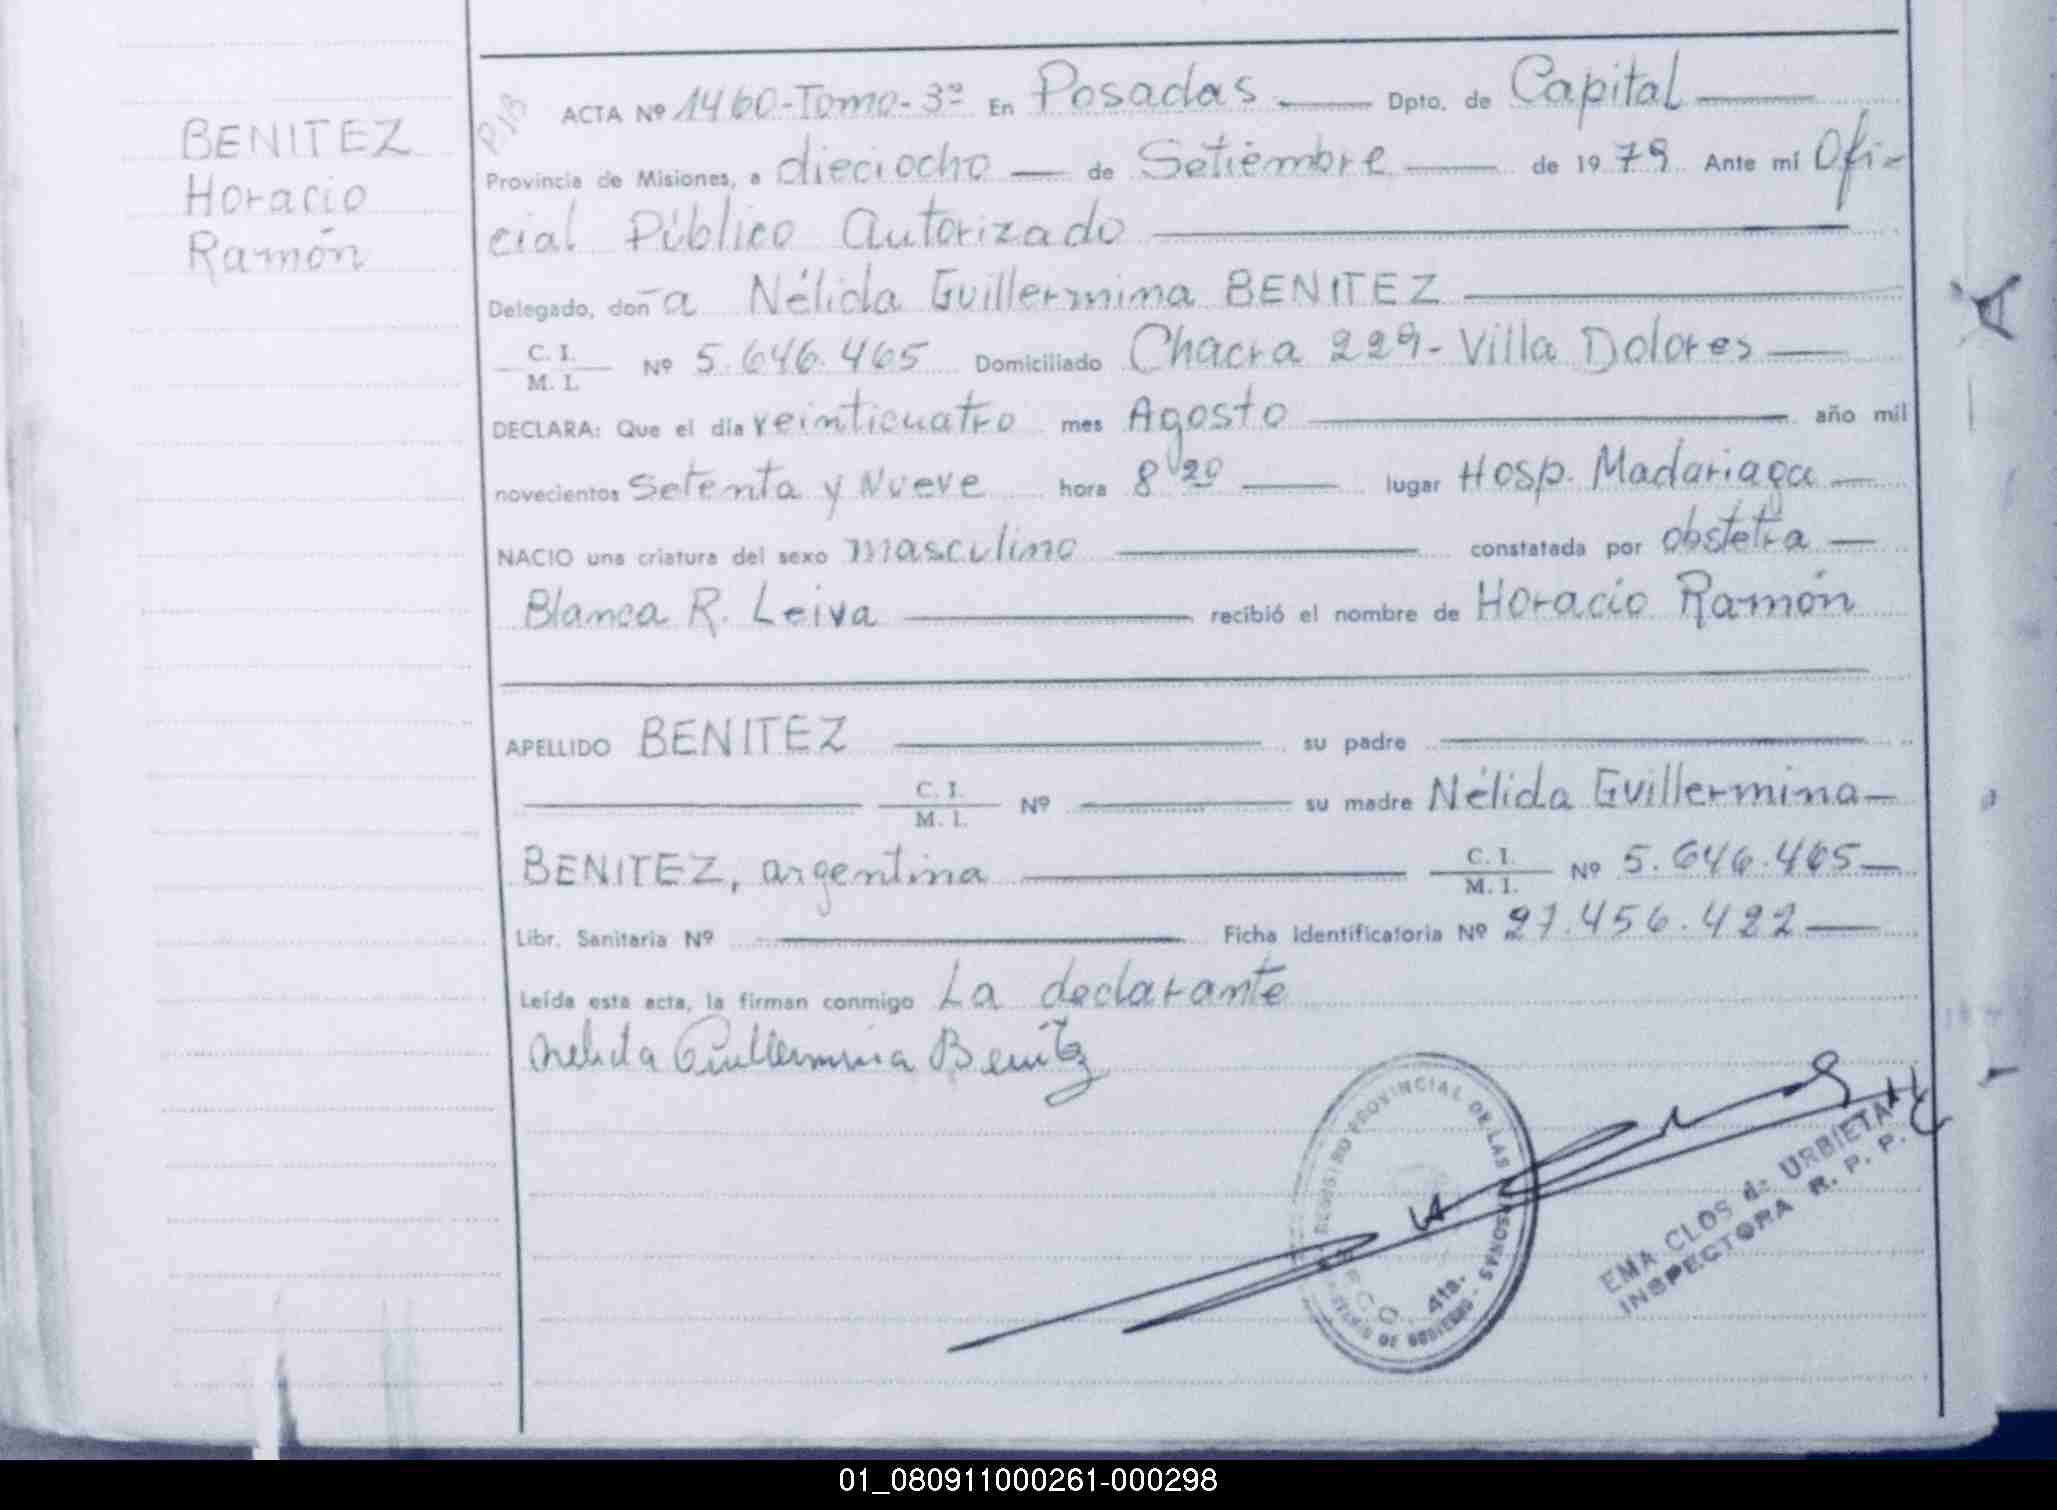 BENITEZ
Horacio
Ramón
ACTA Nº 1460-Tomo-3º En Posadas. Dpto. de Capital
Provincia de Misiones, a dieciocho de Setiembre de 1979. Ante mí Ofi-
cial Público Autorizado
Delegado, don̄a Nélida Guillermina BENITEZ
C. I. / M. I. Nº 5.646.465 Domiciliado Chacra 229-Villa Dolores
DECLARA: Que el día veinticuatro mes Agosto año mil
novecientos Setenta y Nueve hora 8 20 lugar Hosp. Madariaga
NACIO una criatura del sexo masculino constatada por obstetra
Blanca R. Leiva recibió el nombre de Horacio Ramón
APELLIDO BENITEZ su padre
C. I. / M. I. Nº su madre Nélida Guillermina
BENITEZ, argentina C. I. / M. I. Nº 5.646.465
Libr. Sanitaria Nº Ficha Identificatoria Nº 27.456.422
Leída esta acta, la firman conmigo La declarante
Nelida Guillermina Benitez
REGISTRO PROVINCIAL DE LAS PERSONAS
DE GOBIERNO
4ta.
EMA CLOS de URBIETA
INSPECTORA R. P. P.
01_080911000261-000298